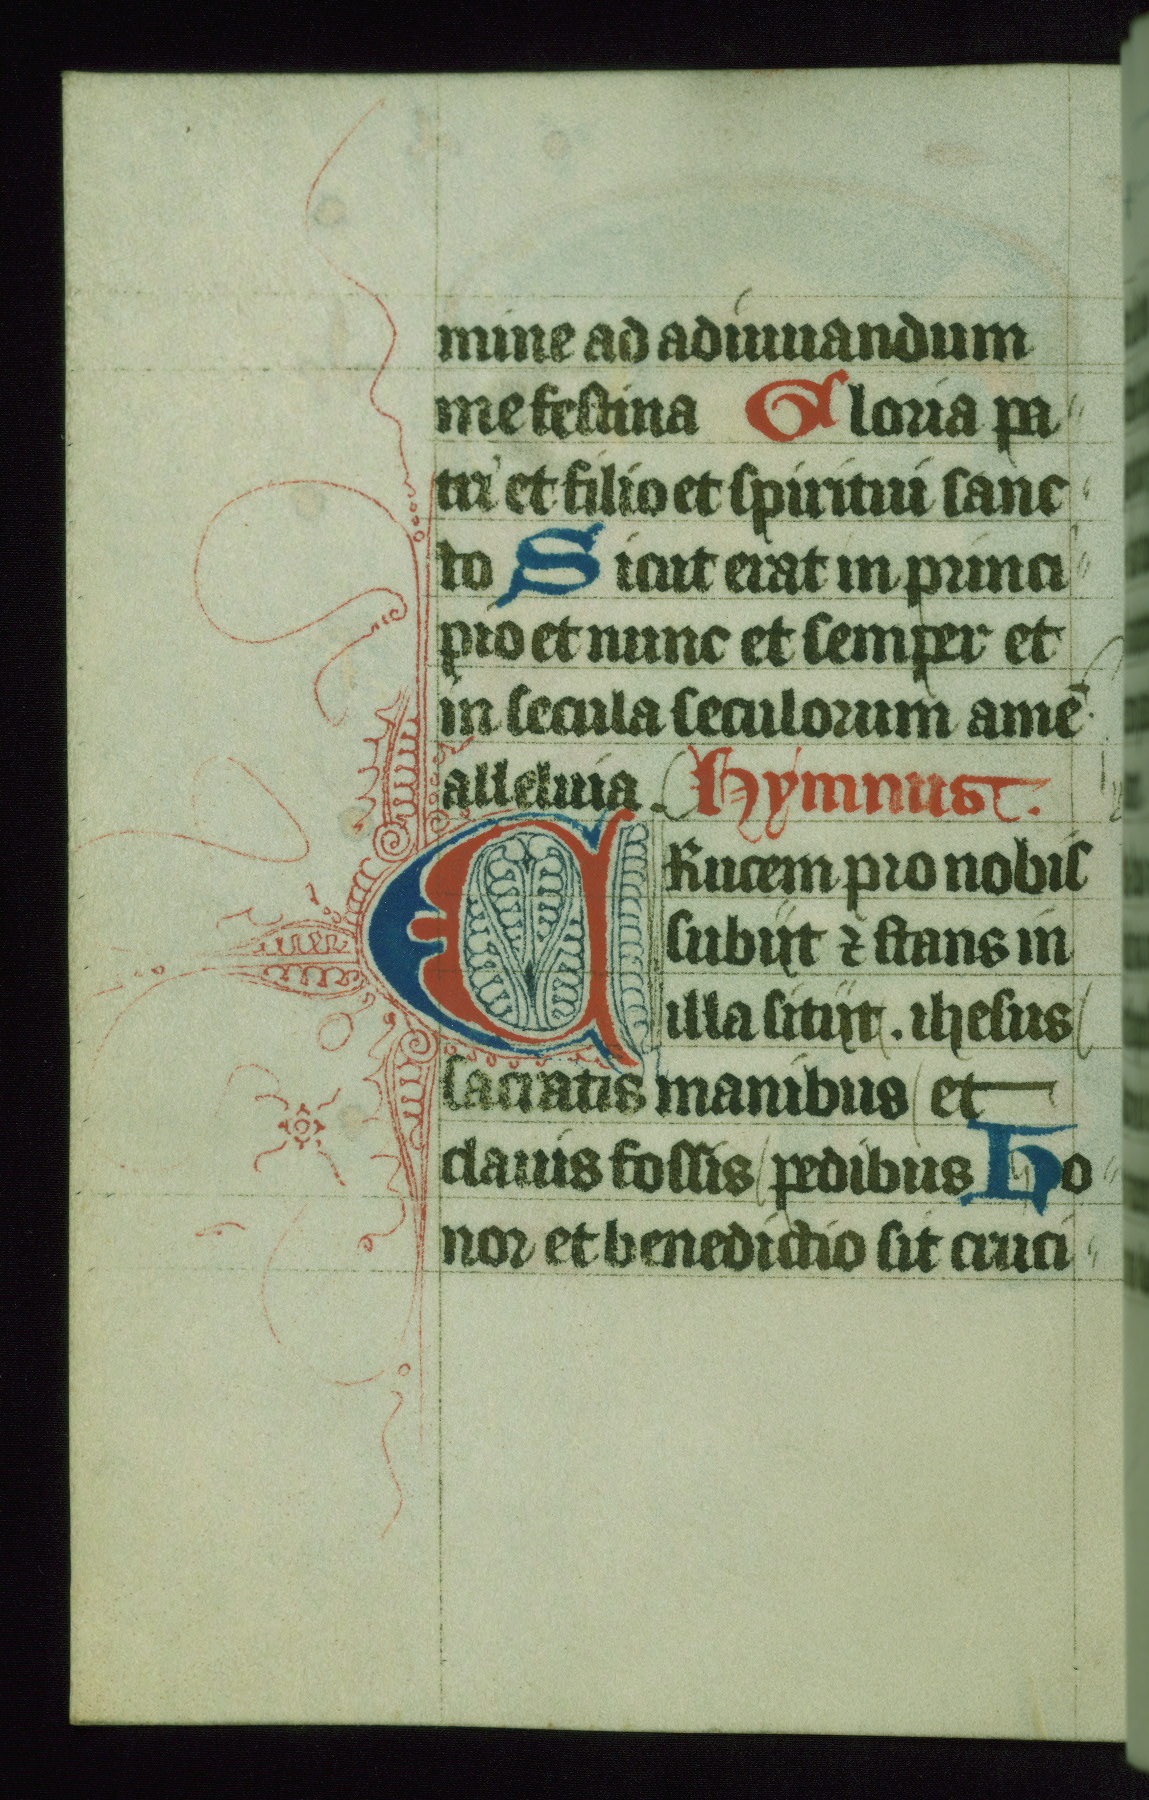 mine ad adiuuandum
me festina Gloria pa
tri et filio et spiritui sanc
to Sicut erat in princi
pio et nunc et semper et
in secula seculorum amē
alleluia. Hymnus.
CRucem pro nobis
subijt ⁊ stans in
illa sitijt. ihesus
sacratis manibus et
clauis fossis pedibus Ho
nor et benedictio sit cruci